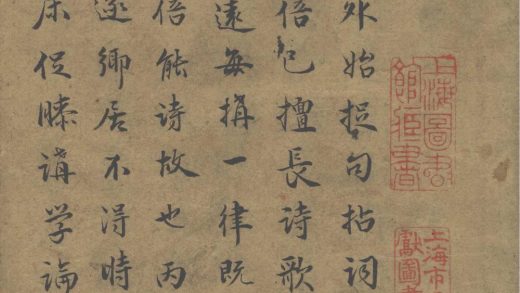 上海圖書
館藏書
上海市
獻圖書
外始捉句拈词
倍已擅長诗歌
遠每搆一律既
倍能诗故也丙
遂鄉居不得時
床促膝講学論